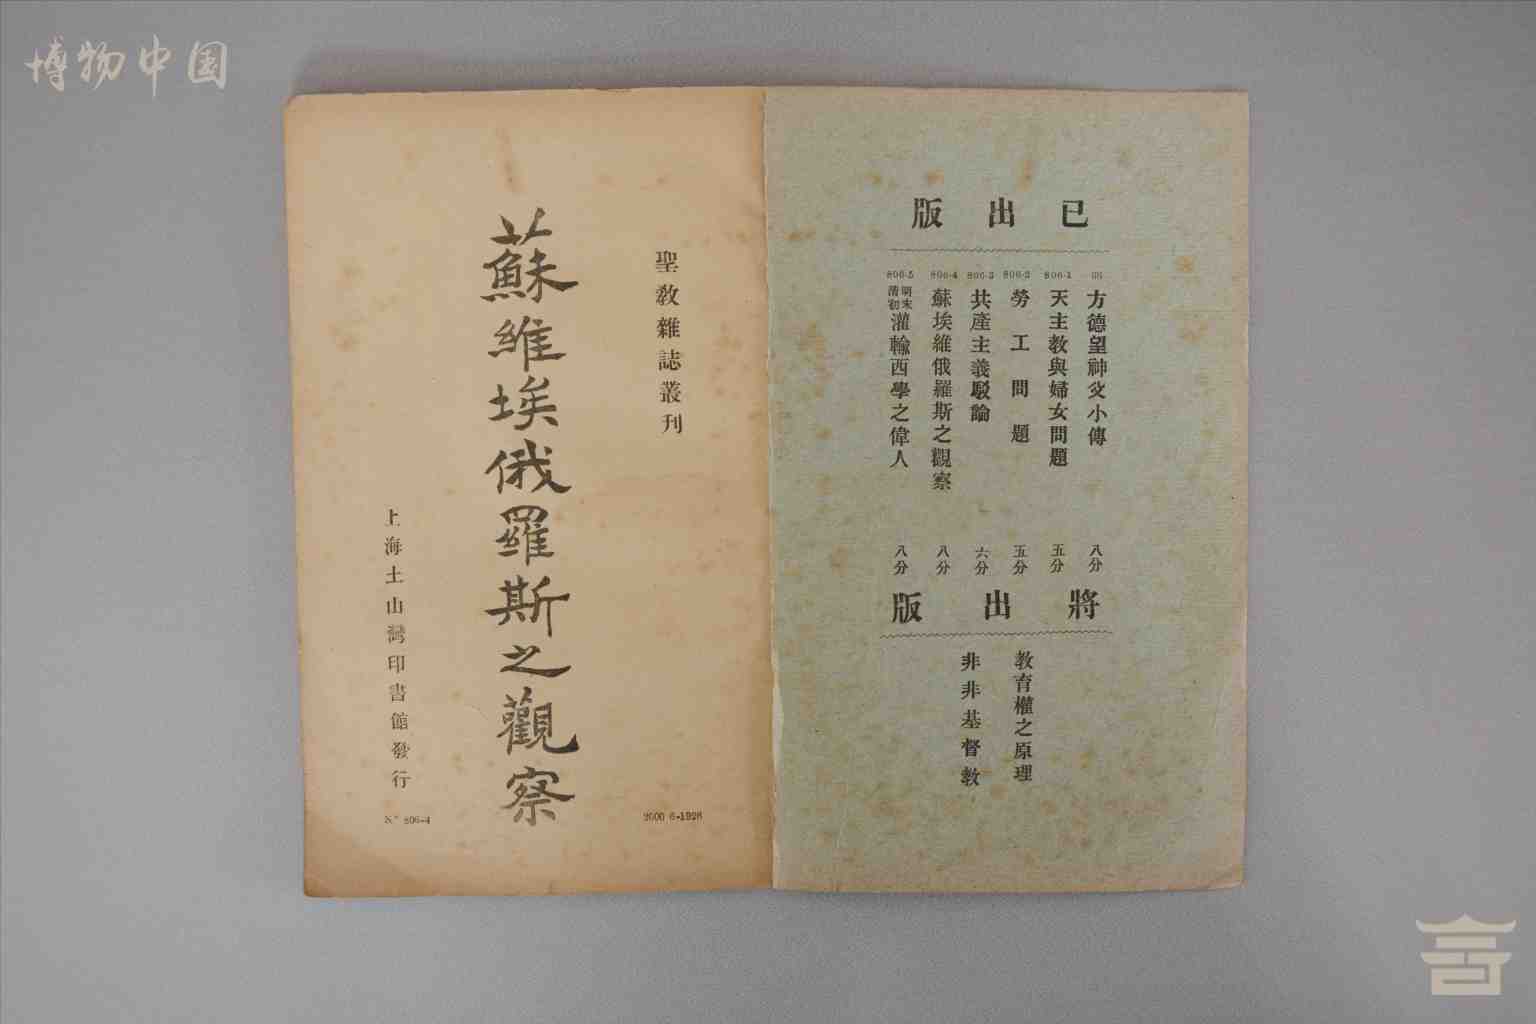 博物中国
已出版
方德望神父小傳 八分
806-1 天主教與婦女問題 五分
806-2 勞工問題 五分
806-3 共產主義駁論 六分
806-4 蘇埃維俄羅斯之觀察 八分
806-5 明末清初灌輸西學之偉人 八分
將出版
教育權之原理
非非基督教
聖教雜誌叢刊
蘇維埃俄羅斯之觀察
上海土山灣印書館發行
2000 6-1926
N° 806-4